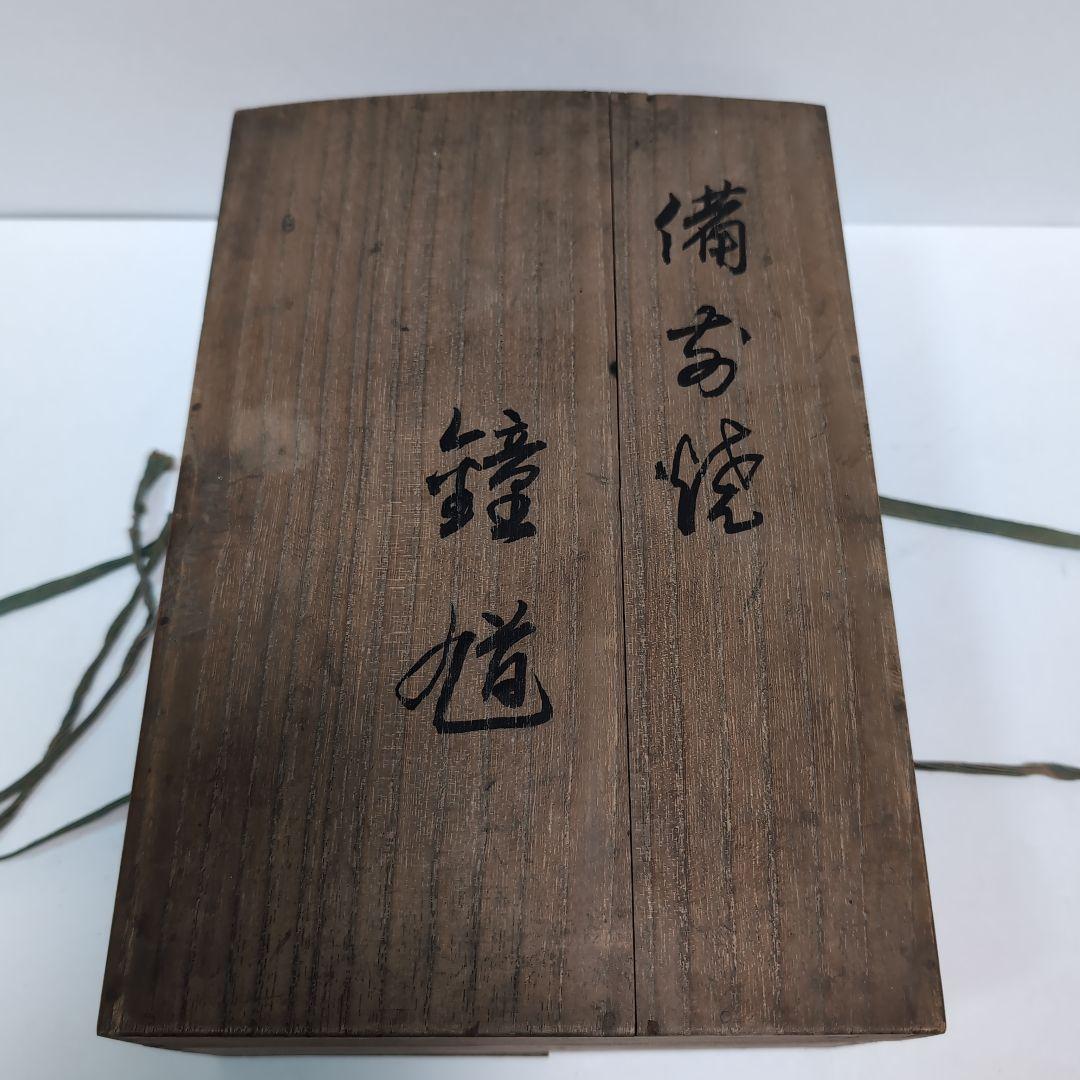 備前焼
鐘馗